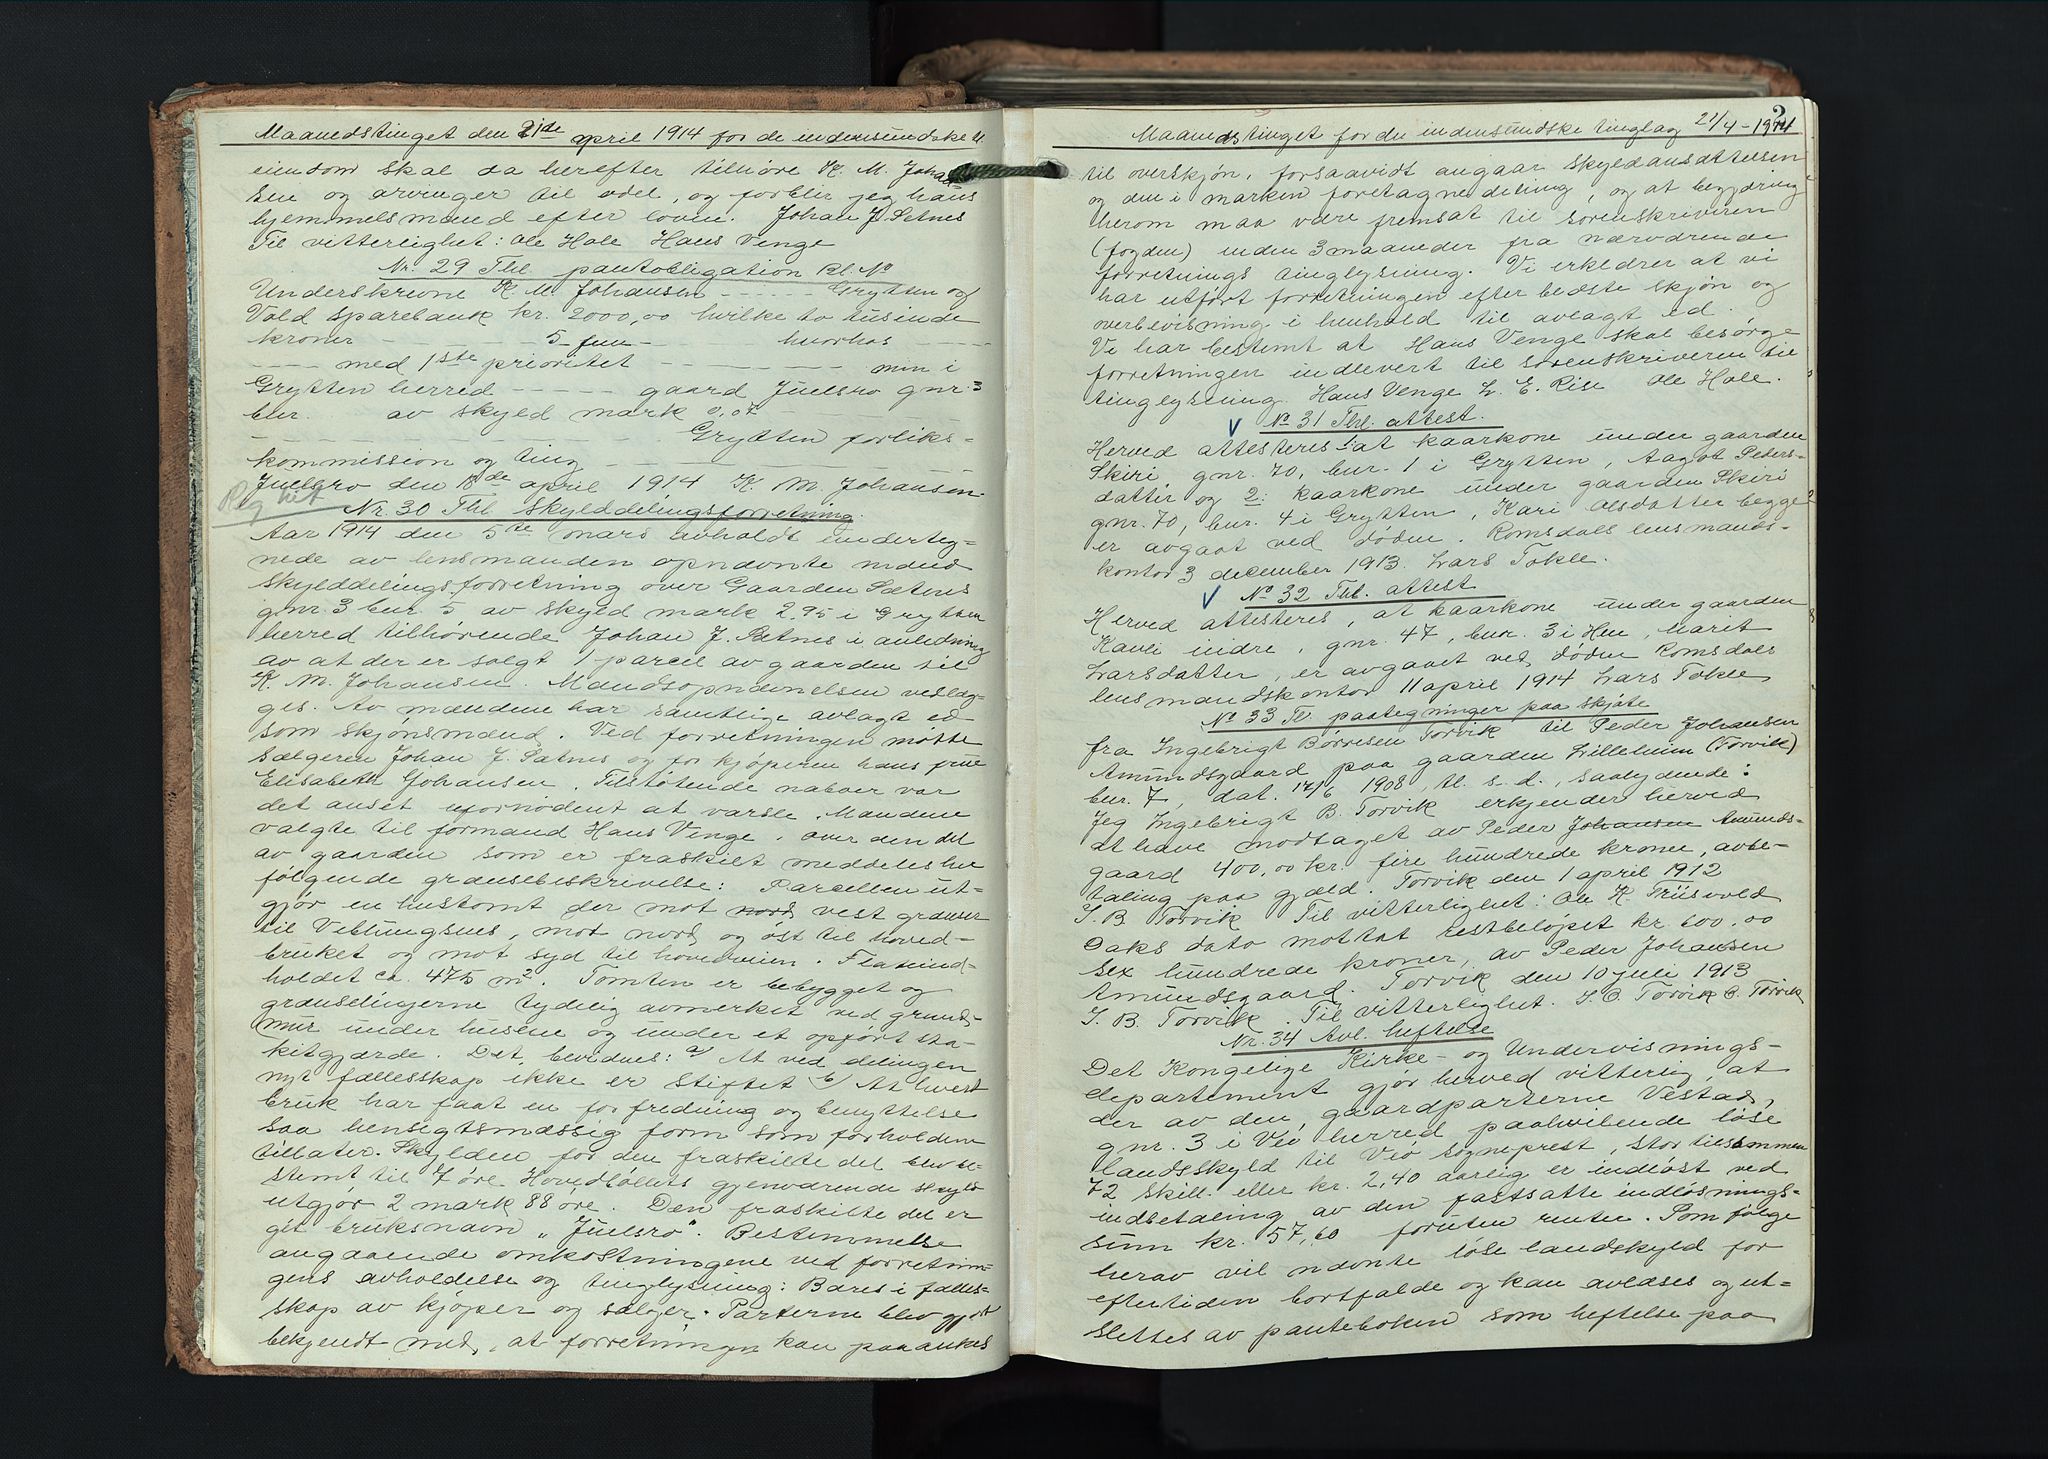 Maanedstinget den 21de april 1914 for de indensundske tl.
eiendom skal da herefter tilhøre K. M. Johan-
sen og arvinger til odel, og forblir jeg hans
hjemmelsmand efter loven. Johan J. Sætnes
Til vitterlighet: Ole Hole Hans Venge
Nr. 29 Thl. pantobligation Bl. No
Underskrevne K. M. Johansen - - - - - Grytten og
Vold sparebank kr. 2000,00 hvilke to tusende
kroner - - - - - 5 fem - - - - - hvorhos - - - -
- - - - med 1ste prioritet - - - - - - min i
Grytten herred - - - - - gaard Juelsro gnr. 3
bnr.      av skyld mark 0,07 - - - - - -
- - - - - - - - - - - - - Grytten forliks-
kommission og ting - - - - - - - - - - -
Juelsro den 18de april 1914 K. M. Johansen.
Reg hit
Nr. 30 Thl Skylddelingsforretning.
Aar 1914 den 5te mars avholdt underteg-
nede av lensmanden opnævnte mænd
skylddelingsforretning over Gaarden Sætnes
gnr. 3 bnr. 5 av skyld mark 2,95 i Grytten
herred tilhørende Johan J. Sætnes i anledning
av at der er solgt 1 parcel av gaarden til
K. M. Johansen. Mandsopnævnelsen vedlæg-
ges. Av mændene har samtlige avlagt ed
som skjønsmænd. Ved forretningen møtte
sælgeren Johan J. Sætnes og for kjøperen hans frue
Elisabeth Johansen. Tilstøtende naboer var
det anset ufornødent at varsle. Mændene
valgte til formand Hans Venge. Over den del
av gaarden som er fraskilt meddeles her
følgende grænsebeskrivelse: Parcellen ut-
gjør en hustomt der mot nord vest grænser
til Veblungsnes, mot nord og øst til hoved-
bruket og mot syd til hovedveien. Flateind-
holdet ca. 475 m². Tomten er bebygget og
grænselinjerne tydelig avmerket ved grund-
mur under husene og under et opført sta-
kitgjærde. Det bevidnes: a/ At ved delingen
nyt fællesskap ikke er stiftet b/ At hvert
bruk har faat en for fredning og benyttelse
saa hensigtsmæssig form som forholdene
tillater. Skylden for den fraskilte del blev be-
stemt til 7 øre Hovedbølets gjenværende skyld
utgjør 2 mark 88 øre. Den fraskilte del er
git bruksnavn "Juelsro". Bestemmelse
angaaende omkostningene ved forretnin-
gens avholdelse og tinglysning: Bæres i fælles-
skap av kjøper og sælger. Parterne blev gjort
bekjendt med, at forretningen kan paaankes
2
Maanedstinget for de indensundske tinglag 21/4-1914
til overskjøn, forsaavidt angaar skyldansættelsen
og den i marken foretagne deling, og at begjæring
herom maa være fremsat til sorenskriveren
(fogden) inden 3 maaneder fra nærværende
forretnings tinglysning. Vi erklærer at vi
har utført forretningen efter bedste skjøn og
overbevisning i henhold til avlagt ed.
Vi har bestemt at Hans Venge skal besørge
forretningen indlevert til sorenskriveren til
tinglysning. Hans Venge L. E. Rise Ole Hole.
No 31 Thl. attest.
Herved attesteres 1: at kaarkone under gaarden
Skiri, gnr. 70, bnr. 1 i Grytten, Aagot Peders-
datter og 2: kaarkone under gaarden Skiri
gnr. 70, bnr. 4 i Grytten, Kari Olsdatter begge
er avgaat ved døden. Romsdals lensmands-
kontor 3 december 1913. Lars Tokle.
No 32 Thl. attest
Herved attesteres, at kaarkone under gaarden
Kavli indre, gnr. 47, bnr. 3 i Hen, Marit
Larsdatter, er avgaaet ved døden Romsdals
lensmandskontor 11 april 1914 Lars Tokle
No 33 Tl. paategninger paa skjøte
fra Ingebrigt Børresen Torvik til Peder Johansen
Amundsgaard paa gaarden Lillehum (Torvik)
bnr. 7, dat. 14/6 1908, tl. s. d., saalydende:
Jeg Ingebrigt B. Torvik erkjender herved
at have modtaget av Peder Johansen Amunds-
gaard 400,00 kr. fire hundrede kroner, avbe-
taling paa gjæld. Torvik den 1 april 1912
I. B Torvik Til vitterlighet: Ole K. Trüsvold
Daks dato mottat restbeløpet kr 600.00
sex hundrede kroner, av Peder Johansen
Amundsgaard. Torvik den 10 juli 1913
I. B. Torvik. Til vitterlighet. S. O. Torvik C. Torvik
Nr. 34 Avl. heftelse
Det Kongelige Kirke- og Undervisnings-
departement gjør herved vitterlig, at
der av den, gaardparterne Vestad,
gnr. 3 i Veø herred paahvilende løse
landsskyld til Veø sogneprest, stor tilsammen
72 skill. eller kr. 2,40 aarlig er indløst ved
indbetaling av den fastsatte indløsnings-
sum kr. 57,60 foruten renter. Som følge
herav vil nævnte løse landskyld for
eftertiden bortfalde og kan avlæses og ut-
slettes av panteboken som heftelse paa